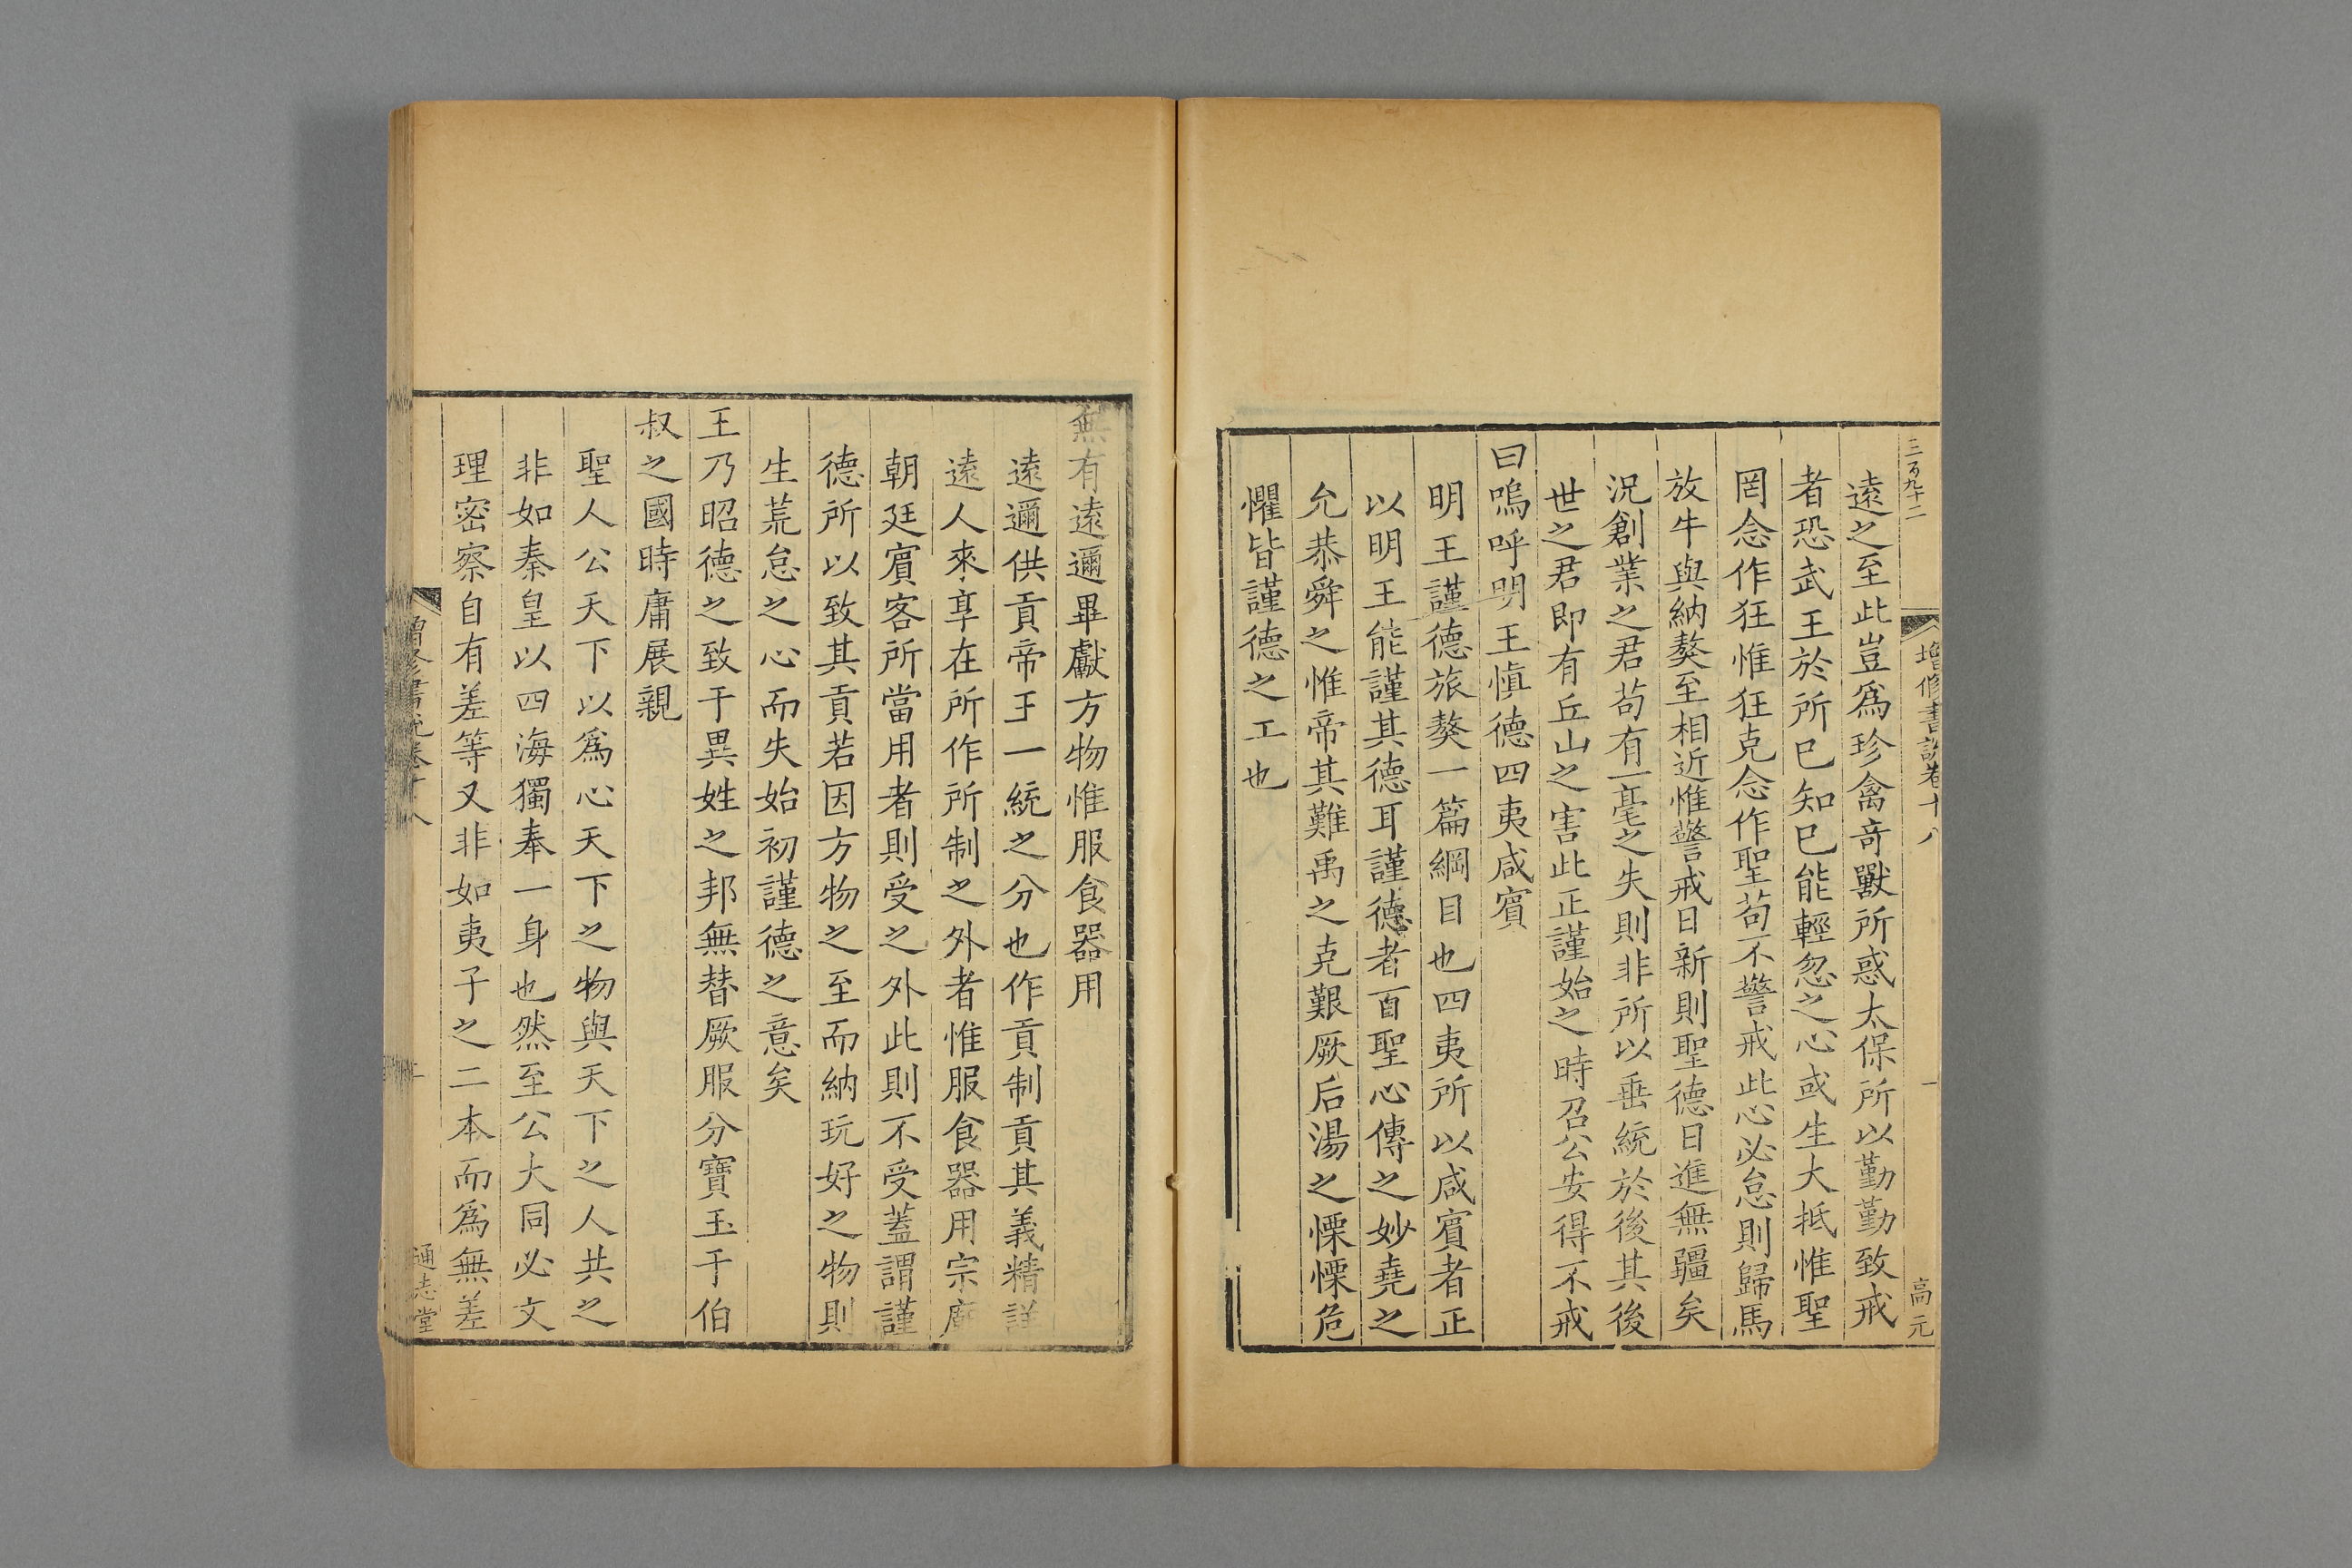 三百九十二
增修書說卷十八
一
高元
遠之至此豈爲珍禽奇獸所惑太保所以勤勤致戒
者恐武王於所已知已能輕忽之心或生大抵惟聖
罔念作狂惟狂克念作聖苟不警戒此心必怠則歸馬
放牛與納獒至相近惟警戒日新則聖德日進無疆矣
況創業之君苟有一毫之失則非所以垂統於後其後
世之君即有丘山之害此正謹始之時召公安得不戒
曰嗚呼明王愼德四夷咸賓
明王謹德旅獒一篇綱目也四夷所以咸賓者正
以明王能謹其德耳謹德者百聖心傳之妙堯之
允恭舜之惟帝其難禹之克艱厥后湯之慄慄危
懼皆謹德之工也
無有遠邇畢獻方物惟服食器用
遠邇供貢帝王一統之分也作貢制貢其義精詳
遠人來享在所作所制之外者惟服食器用宗廟
朝廷賓客所當用者則受之外此則不受蓋謂謹
德所以致其貢若因方物之至而納玩好之物則
生荒怠之心而失始初謹德之意矣
王乃昭德之致于異姓之邦無替厥服分寶玉于伯
叔之國時庸展親
聖人公天下以爲心天下之物與天下之人共之
非如秦皇以四海獨奉一身也然至公大同必文
理密察自有差等又非如夷子之二本而爲無差
增修書說卷十八
通志堂